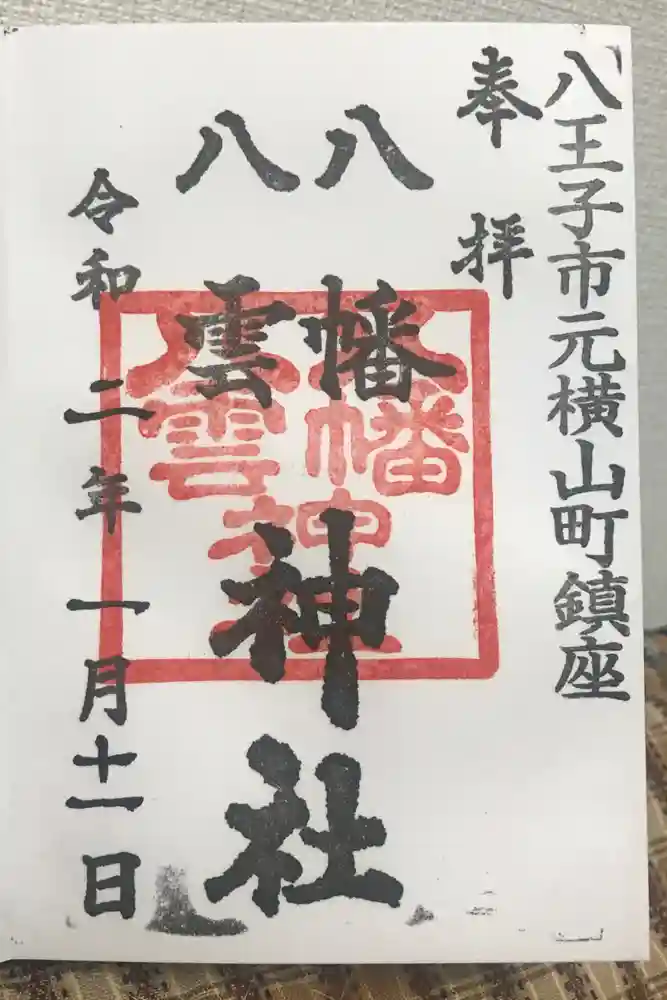 八王子市元横山町鎮座
奉拝
八幡
八雲
神社
令和二年一月十一日
八幡
八雲
神社